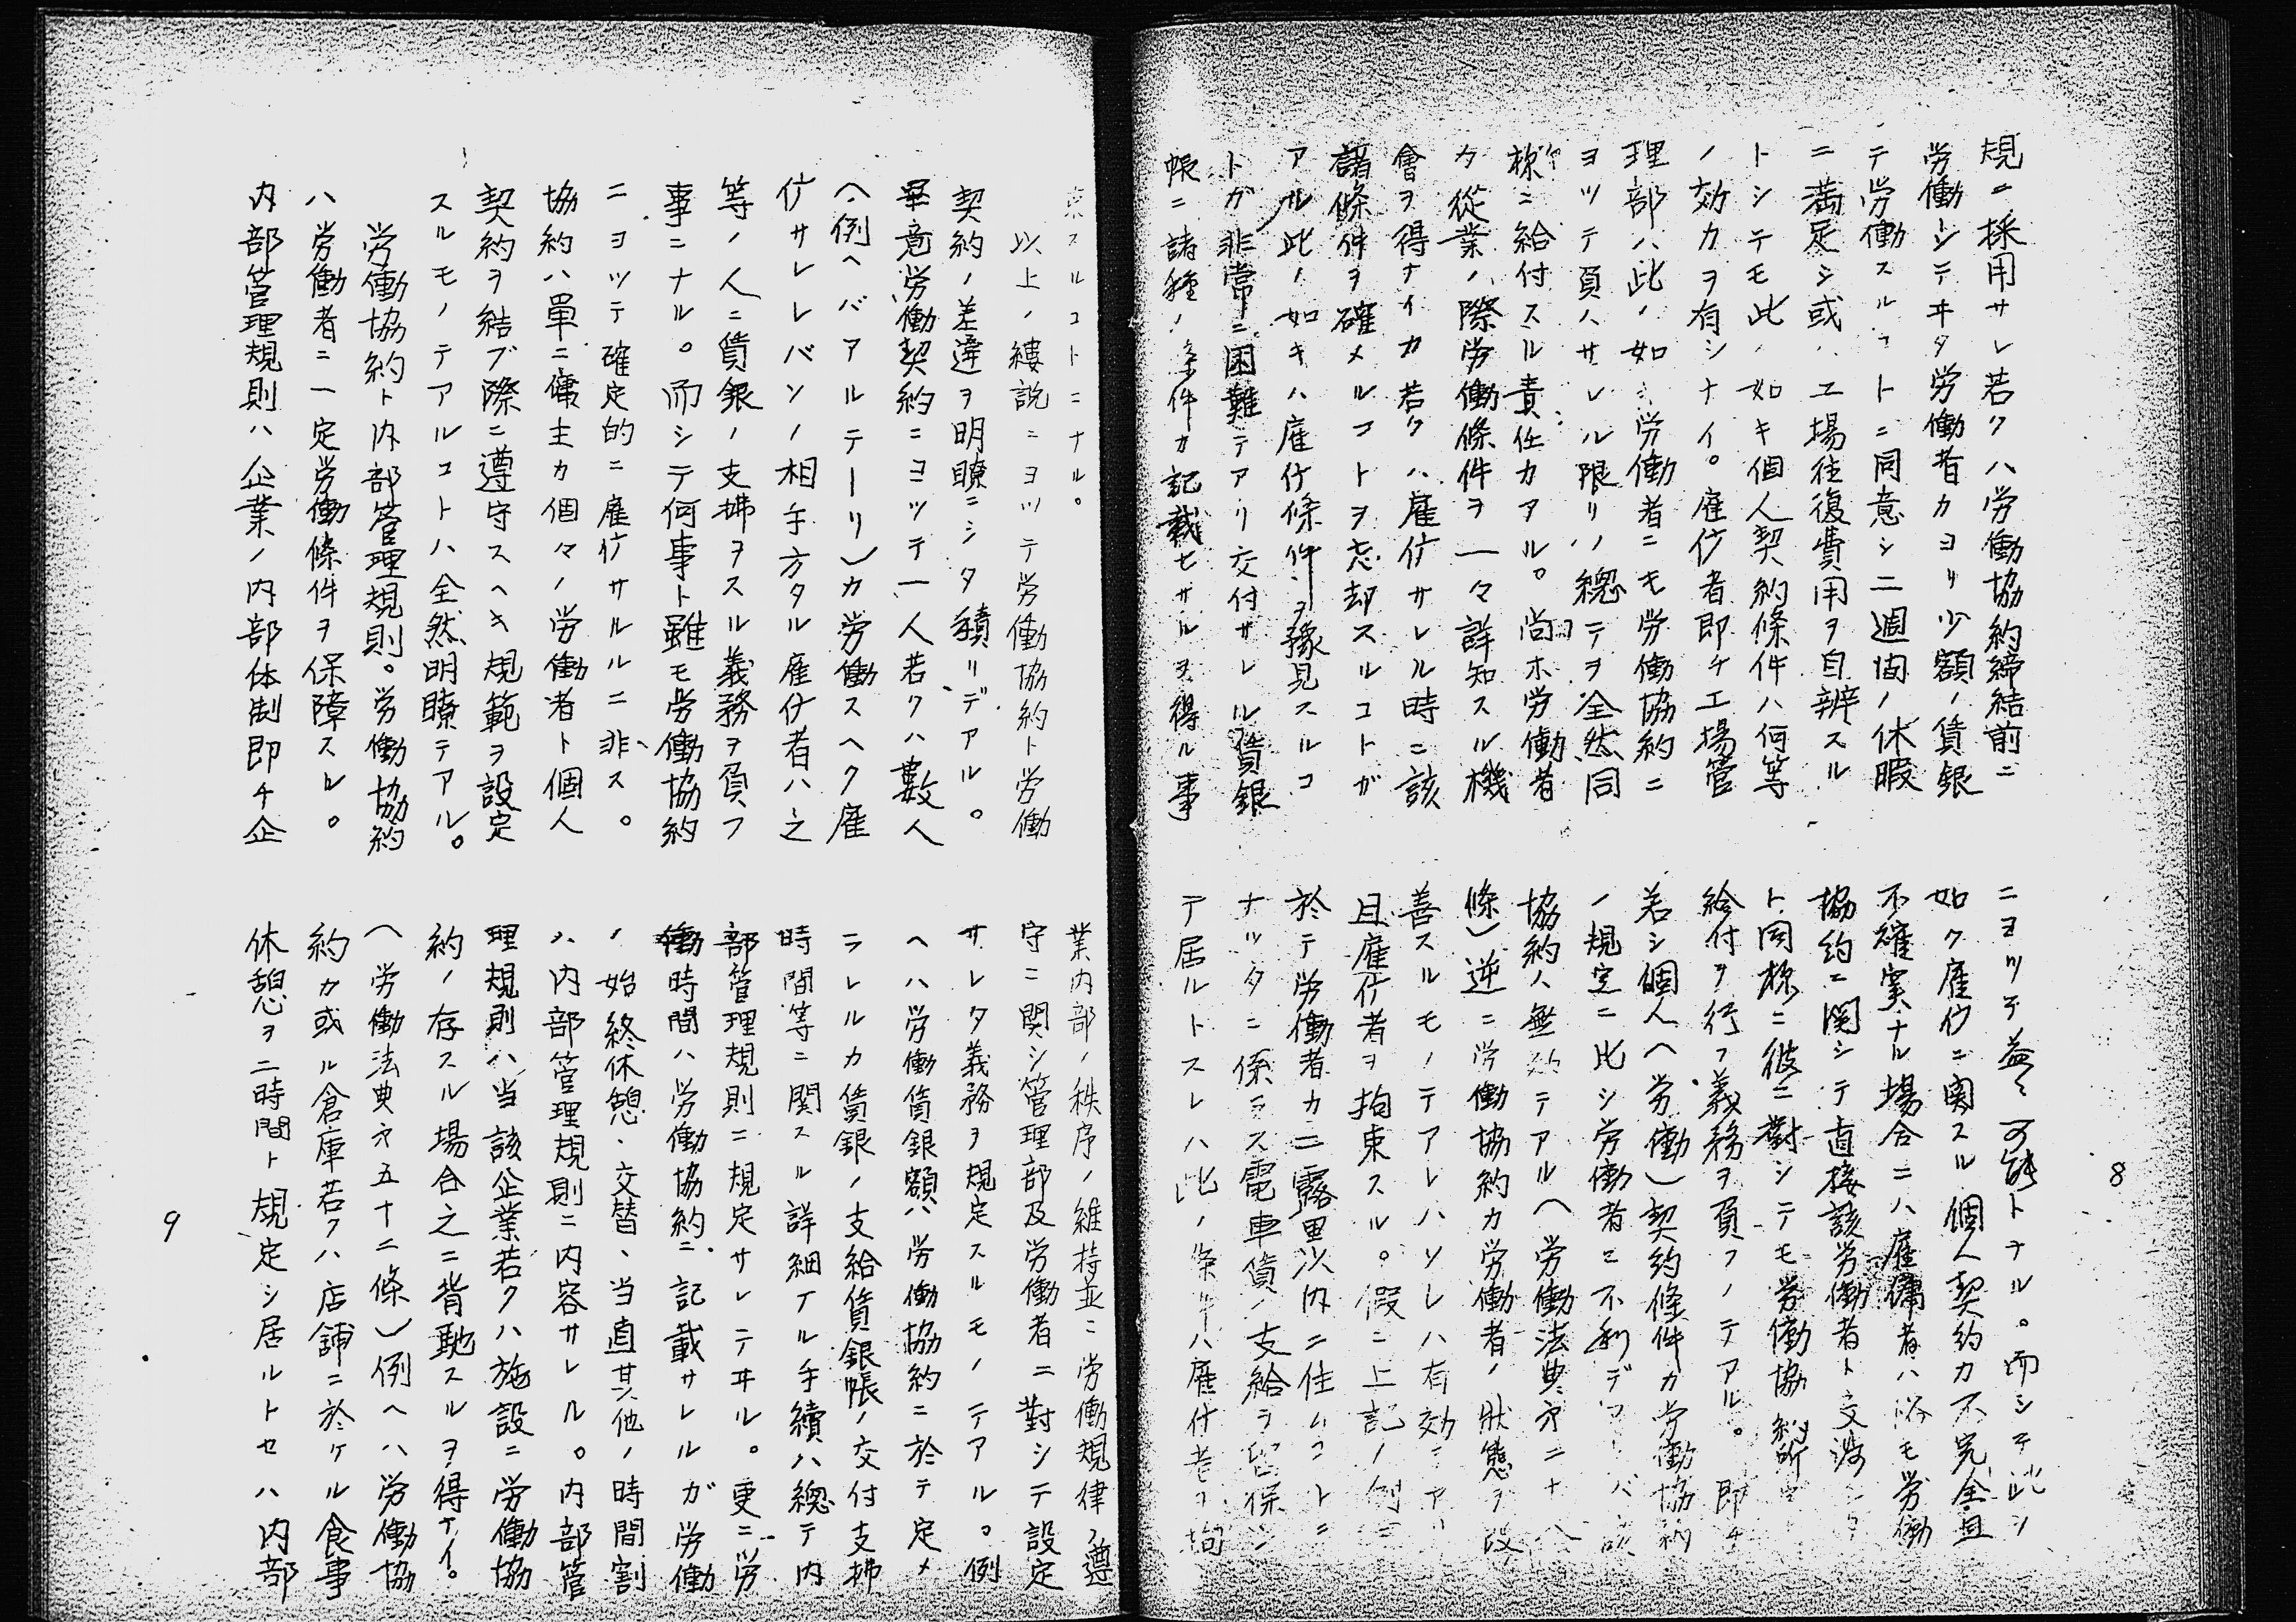 規ニ採用サレ若クハ労働協約締結前ニ
労働シテヰタ労働者カヨリ少額ノ賃銀
テ労働スルコトニ同意シ二週間ノ休暇
ニ満足シ或ハ工場往復費用ヲ自辨スル
トシテモ此ノ如キ個人契約條件ハ何等
ノ効力ヲ有シナイ。雇傭者即チ工場管
理部ハ此ノ如キ労働者ニモ労働協約ニ
ヨツテ負ハサレル限リノ總テヲ全然同
様ニ給付スル責任カアル。尚ホ労働者
カ從業ノ際労働條件ヲ一々詳知スル機
會ヲ得ナイカ若クハ雇傭サレル時ニ該
諸條件ヲ確メルコトヲ忘却スルコトガ
アル此ノ如キハ雇傭條件ヲ豫見スルコ
トガ非常ニ困難テアリ交付サレル賃銀
帳ニ諸種ノ条件カ記載セサルヲ得ル事
ニヨツテ益々可能トナル。而シテ此ノ
如ク雇傭ニ関スル個人契約カ不完全且
不確実ナル場合ニハ雇傭者ハ恰モ労働
協約ニ関シテ直接該労働者ト交渉シタ
ト同様ニ彼ニ對シテモ労働協約所定
給付ヲ行フ義務ヲ負フノテアル。即チ
若シ個人(労働)契約條件カ労働協約
ノ規定ニ比シ労働者ニ不利デアレバ該
協約ハ無効テアル(労働法典第二十八
條)逆ニ労働協約カ労働者ノ状態ヲ改
善スルモノテアレハソレハ有効テアリ
且雇傭者ヲ拘束スル。假ニ上記ノ例ニ
於テ労働者カ二露里以内ニ住ムコトニ
ナツタニ係ラス電車賃ノ支給ヲ留保シ
テ居ルトスレハ此ノ条件ハ雇傭者ヲ拘
8
束スルコトニナル。
以上ノ縷説ニヨツテ労働協約ト労働
契約ノ差違ヲ明瞭ニシタ積リデアル。
畢竟労働契約ニヨツテ一人若クハ數人
(例ヘバアルテーリ)カ労働スヘク雇
傭サレレバソノ相手方タル雇傭者ハ之
等ノ人ニ賃銀ノ支拂ヲスル義務ヲ負フ
事ニナル。而シテ何事ト雖モ労働協約
ニヨツテ確定的ニ雇傭サルルニ非ス。
協約ハ單ニ傭主カ個々ノ労働者ト個人
契約ヲ結ブ際ニ遵守スヘキ規範ヲ設定
スルモノテアルコトハ全然明瞭テアル。
労働協約ト内部管理規則。労働協約
ハ労働者ニ一定労働條件ヲ保障スル。
内部管理規則ハ企業ノ内部体制即チ企
業内部ノ秩序ノ維持並ニ労働規律ノ遵
守ニ関シ管理部及労働者ニ對シテ設定
サレタ義務ヲ規定スルモノテアル。例
ヘハ労働賃銀額ハ労働協約ニ於テ定メ
ラレルカ賃銀ノ支給賃銀帳ノ交付支拂
時間等ニ関スル詳細ナル手續ハ總テ内
部管理規則ニ規定サレテヰル。更ニ労
働時間ハ労働協約ニ記載サレルガ労働
ノ始終休憩、交替、当直其他ノ時間割
ハ内部管理規則ニ内容サレル。内部管
理規則ハ当該企業若クハ施設ニ労働協
約ノ存スル場合之ニ背馳スルヲ得ナイ。
(労働法典第五十二條)例ヘハ労働協
約カ或ル倉庫若クハ店舗ニ於ケル食事
休憩ヲ二時間ト規定シ居ルトセハ内部
9